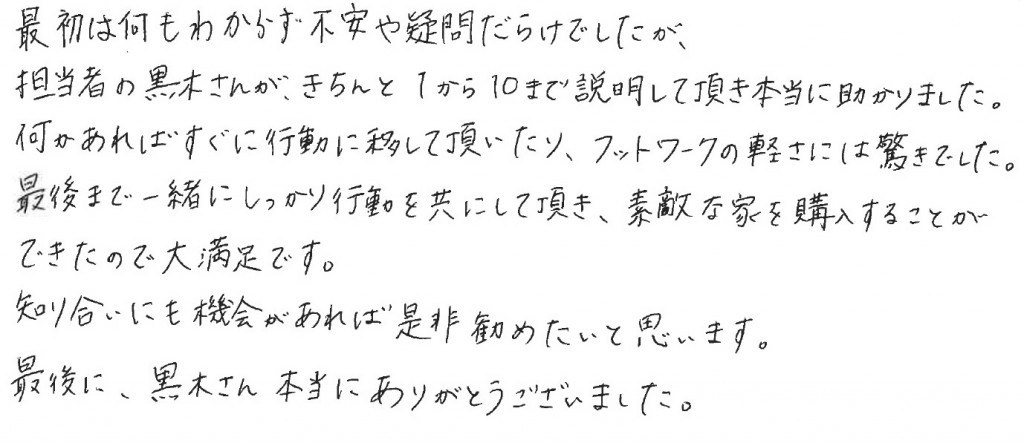 最初は何もわからず不安や疑問だらけでしたが、
担当者の黒木さんが、きちんと1から10まで説明して頂き本当に助かりました。
何かあればすぐに行動に移して頂いたり、フットワークの軽さには驚きでした。
最後まで一緒にしっかり行動を共にして頂き、素敵な家を購入することが
できたので大満足です。
知り合いにも機会があれば是非勧めたいと思います。
最後に、黒木さん 本当にありがとうございました。